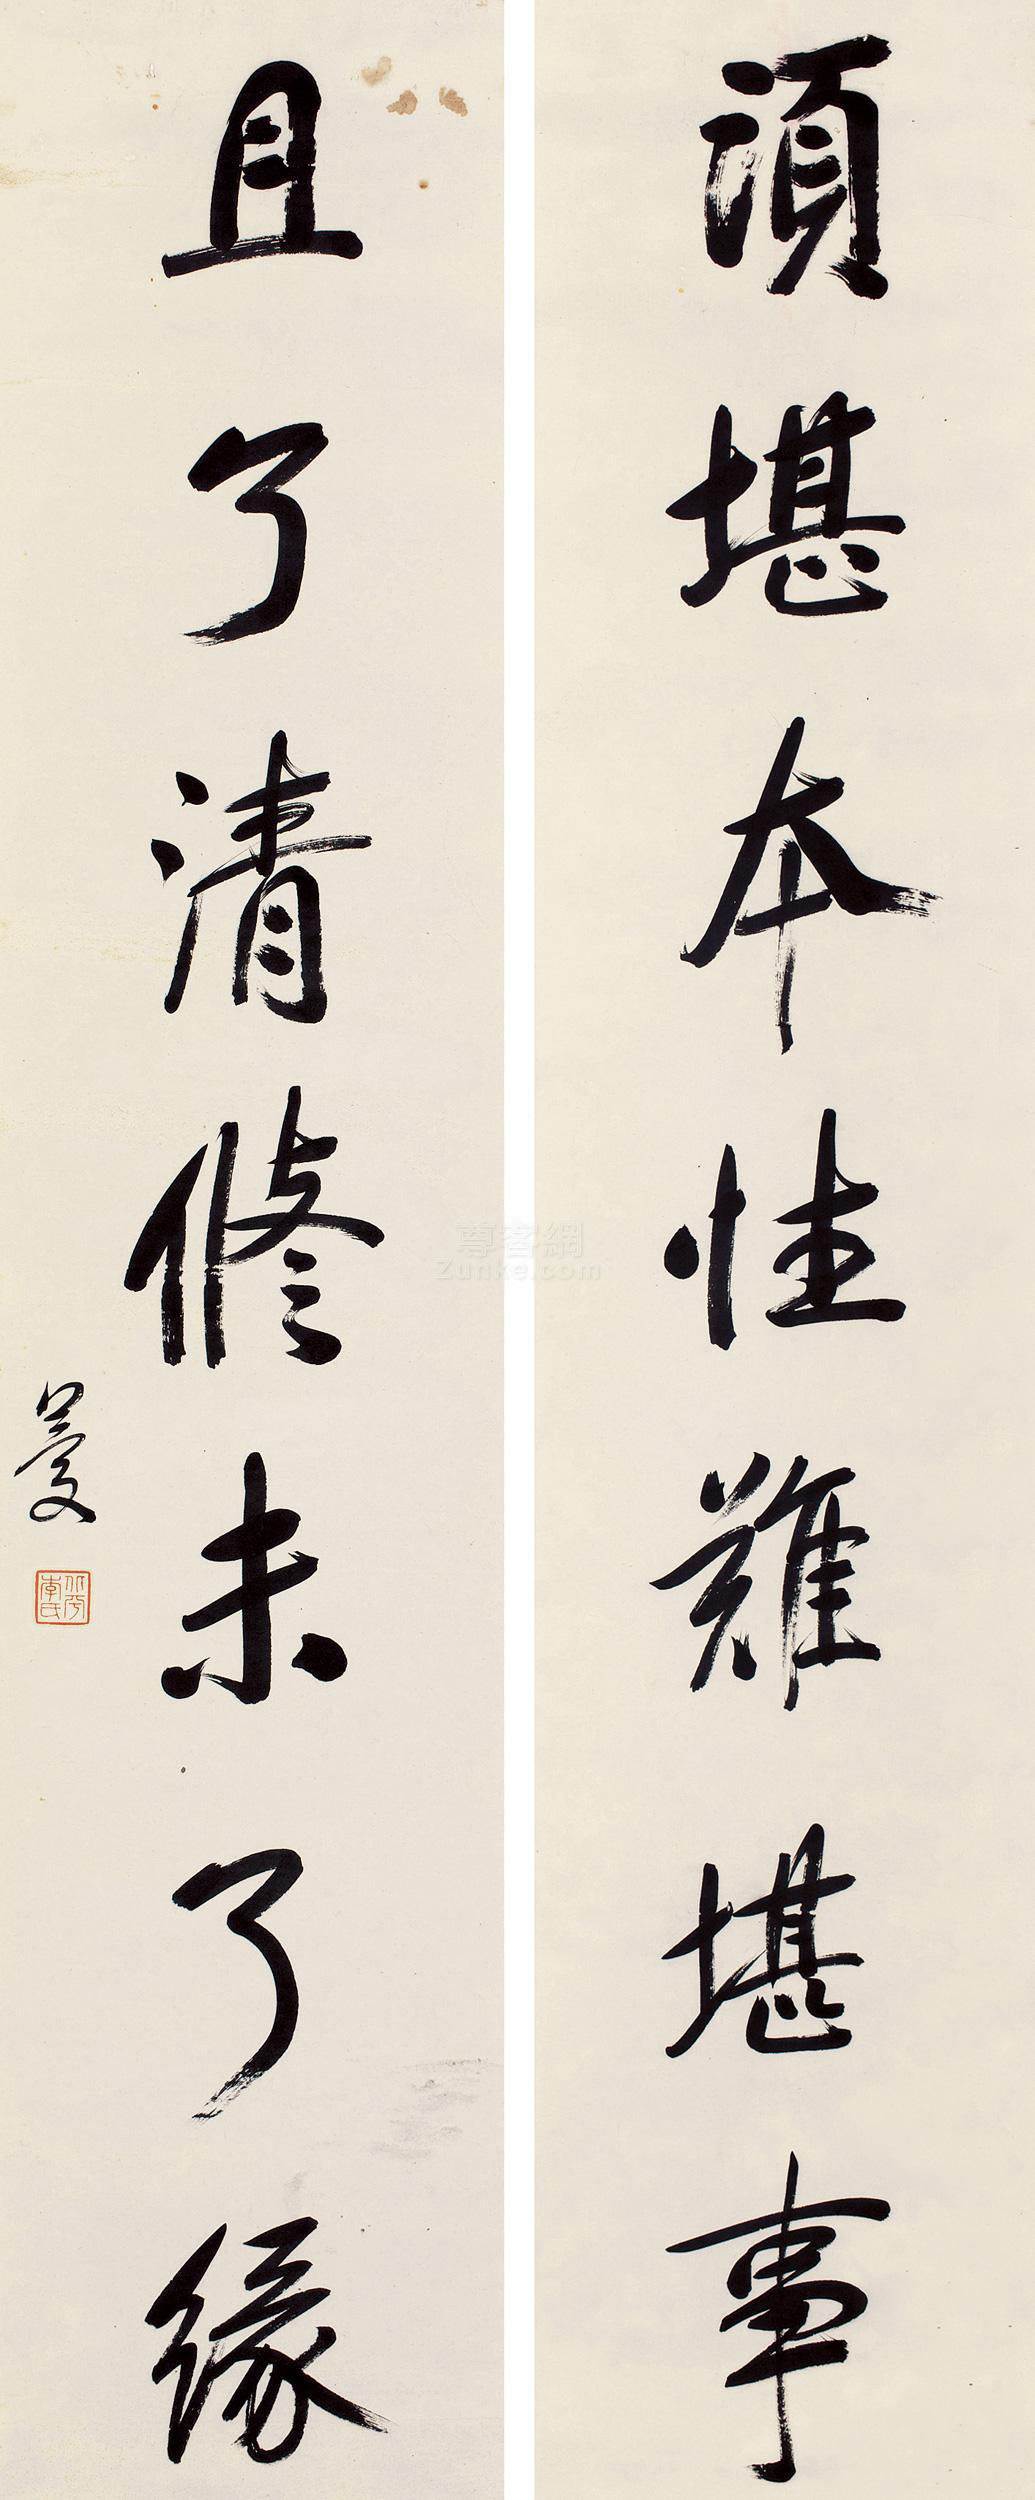 須堪本性難堪事
且了清修未了緣
曼
尊客網
Zunke.com